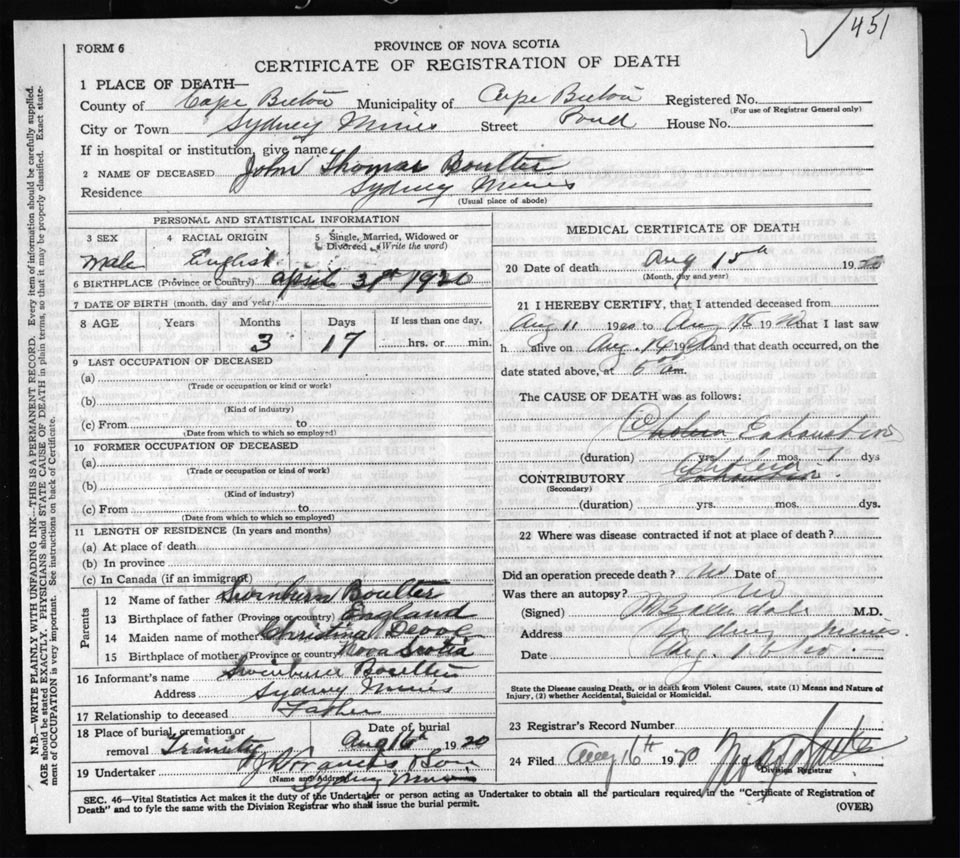 451
FORM 6
PROVINCE OF NOVA SCOTIA
CERTIFICATE OF REGISTRATION OF DEATH
1 PLACE OF DEATH—
County of Cape Breton Municipality of Cape Breton Registered No.
(For use of Registrar General only)
City or Town Sydney Mines Street Pond House No.
If in hospital or institution, give name
2 NAME OF DECEASED John Thomas Boulter
Residence Sydney Mines
(Usual place of abode)
PERSONAL AND STATISTICAL INFORMATION
3 SEX 4 RACIAL ORIGIN 5 Single, Married, Widowed or Divorced (Write the word)
Male English
6 BIRTHPLACE (Province or Country) April 3rd 1920
7 DATE OF BIRTH (month, day and year)
8 AGE Years Months Days If less than one day,
3 17 hrs. or min.
9 LAST OCCUPATION OF DECEASED
(a)
(Trade or occupation or kind or work)
(b)
(Kind of industry)
(c) From to
(Date from which to which so employed)
10 FORMER OCCUPATION OF DECEASED
(a)
(Trade or occupation or kind of work)
(b)
(Kind of industry)
(c) From to
(Date from which to which so employed)
11 LENGTH OF RESIDENCE (In years and months)
(a) At place of death
(b) In province
(c) In Canada (if an immigrant)
Parents
12 Name of father Swinburn Boulter
13 Birthplace of father (Province or country) England
14 Maiden name of mother Christina
15 Birthplace of mother (Province or country) Nova Scotia
16 Informant's name Swinburn Boulter
Address Sydney Mines
17 Relationship to deceased Father
18 Place of burial, cremation or removal Trinity Date of burial Aug 16th 1920
19 Undertaker & Son
(Name and Address) Sydney Mines
MEDICAL CERTIFICATE OF DEATH
20 Date of death Aug 15th 1920
(Month, day and year)
21 I HEREBY CERTIFY, that I attended deceased from
Aug 11 1920 to Aug 15 1920 that I last saw
h alive on Aug. 14 1920 and that death occurred, on the
date stated above, at 6 am.
The CAUSE OF DEATH was as follows:
Cholera Exhaustion
(duration) yrs. mos. 7 dys
CONTRIBUTORY Cholera
(Secondary) Exhaustion
(duration) yrs. mos. dys.
22 Where was disease contracted if not at place of death?
Did an operation precede death? No Date of
Was there an autopsy? No
(Signed) M.D.
Address Sydney Mines.
Date Aug. 16
State the Disease causing Death, or in death from Violent Causes, state (1) Means and Nature of
Injury, (2) whether Accidental, Suicidal or Homicidal.
23 Registrar's Record Number
24 Filed Aug 16th 1920
Division Registrar
SEC. 46—Vital Statistics Act makes it the duty of the Undertaker or person acting as Undertaker to obtain all the particulars required in the "Certificate of Registration of
Death" and to fyle the same with the Division Registrar who shall issue the burial permit.
(OVER)
N.B.—WRITE PLAINLY WITH UNFADING INK—THIS IS A PERMANENT RECORD. Every item of information should be carefully supplied.
AGE should be stated EXACTLY. PHYSICIANS should STATE CAUSE OF DEATH in plain terms, so that it may be properly classified. Exact state-
ment of OCCUPATION is very important. See instructions on back of Certificate.